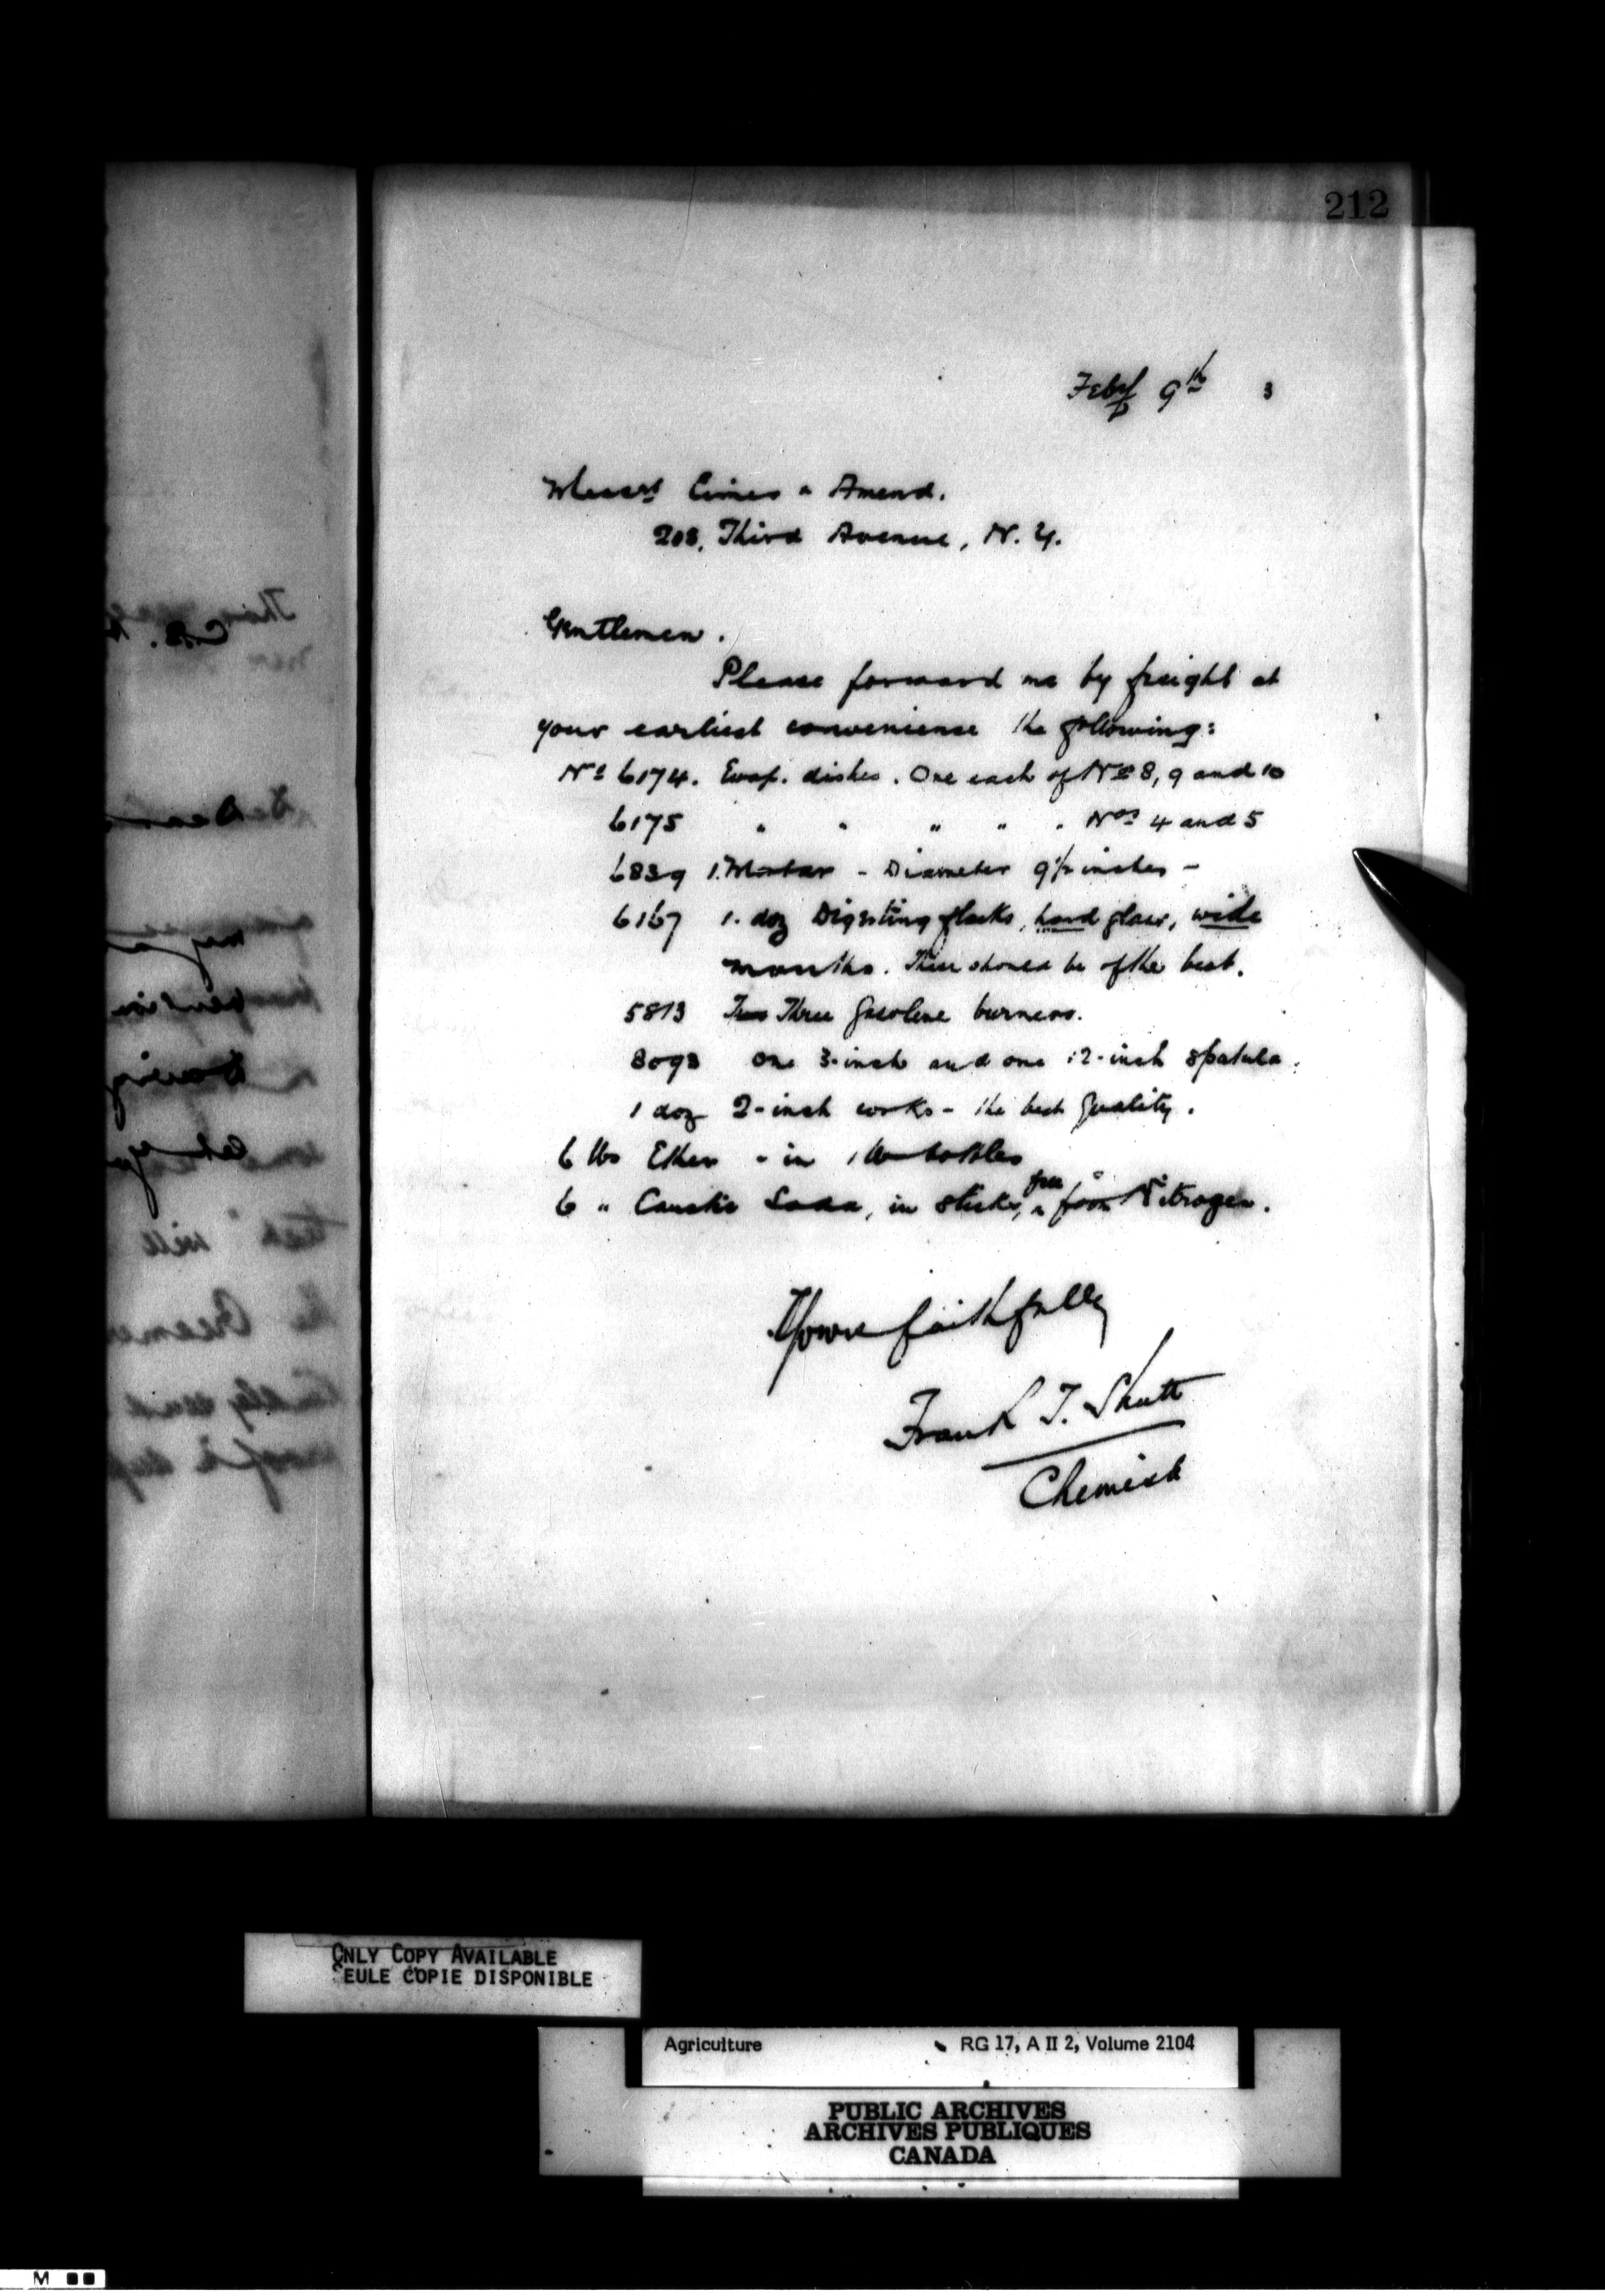 212
Feby 9th 3
Messrs Eimer & Amend.
208, Third Avenue, N. Y.
Gentlemen.
Please forward me by freight at
your earliest convenience the following:
No 6174. Evap. dishes. One each of Nos 8, 9 and 10
6175 " " " " " Nos 4 and 5
6839 1. Mortar - Diameter 9½ inches -
6167 1. doz Digesting flasks, hard glass, wide
mouths. These should be of the best.
5813 Two Three Gasolene burners.
8093 One 3-inch and one 12-inch spatula.
1 doz 2-inch corks - the best quality.
6 lbs Ether - in 1 lb bottles
6 " Caustic Soda, in sticks, free from Nitrogen.
Yours faithfully
Frank T. Shutt
Chemist
ONLY COPY AVAILABLE
SEULE COPIE DISPONIBLE
Agriculture RG 17, A II 2, Volume 2104
PUBLIC ARCHIVES
ARCHIVES PUBLIQUES
CANADA
M